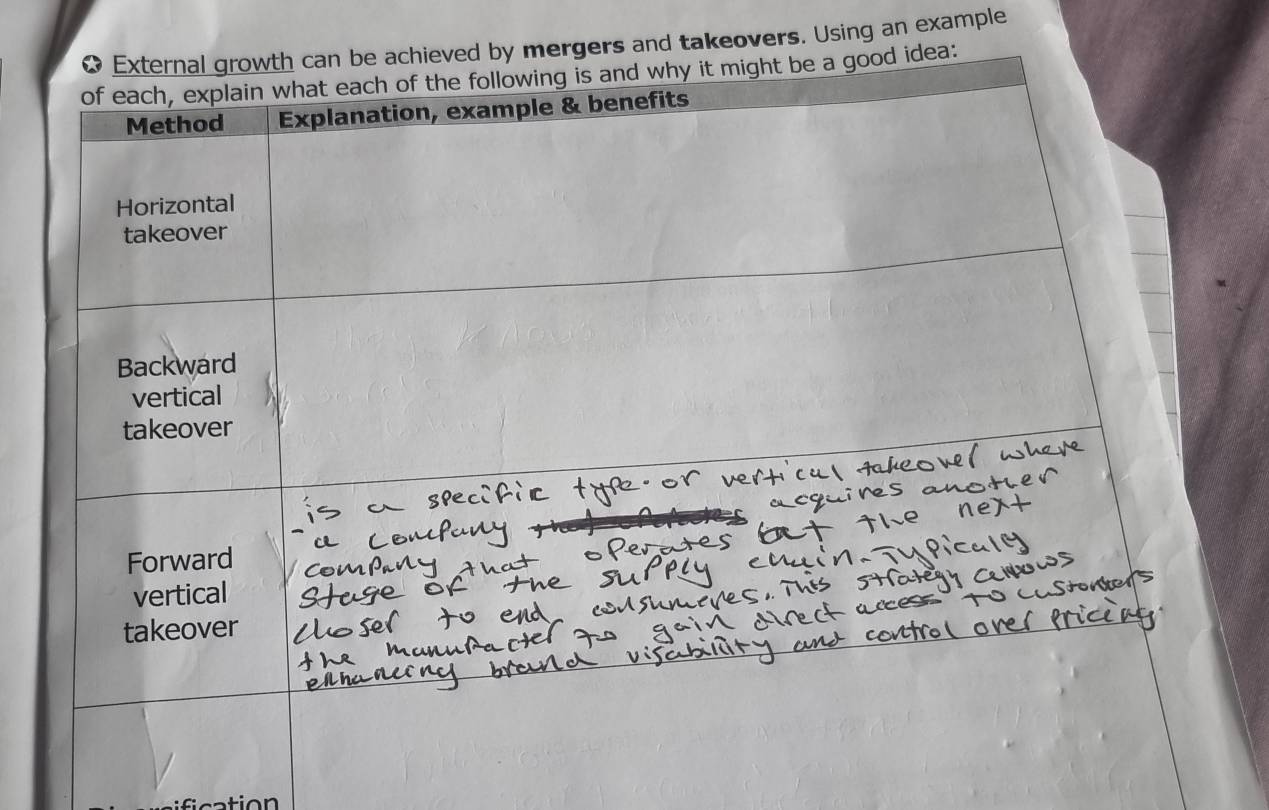 ✪ External growth can be achieved by mergers and takeovers. Using an example
of each, explain what each of the following is and why it might be a good idea:
Method Explanation, example & benefits
Horizontal
takeover
Backward
vertical
takeover
Forward
vertical
takeover
- is a specific type. or vertical takeover where
a company acquires another
company that operates at the next
stage of the supply chain. Typicaly
closer to end consumeres. This strategy allows
the manufacter to gain direct access to customers
enhancing brand visability and control over pricing.